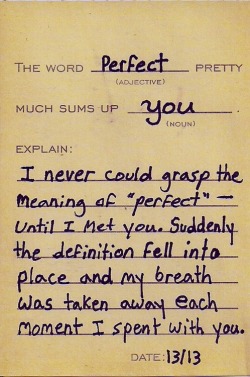 THE WORD Perfect PRETTY
(ADJECTIVE)
MUCH SUMS UP you
(NOUN)
EXPLAIN:
I never could grasp the
meaning of "perfect" —
until I met you. Suddenly
the definition fell into
place and my breath
was taken away each
moment I spent with you.
DATE: 13/13